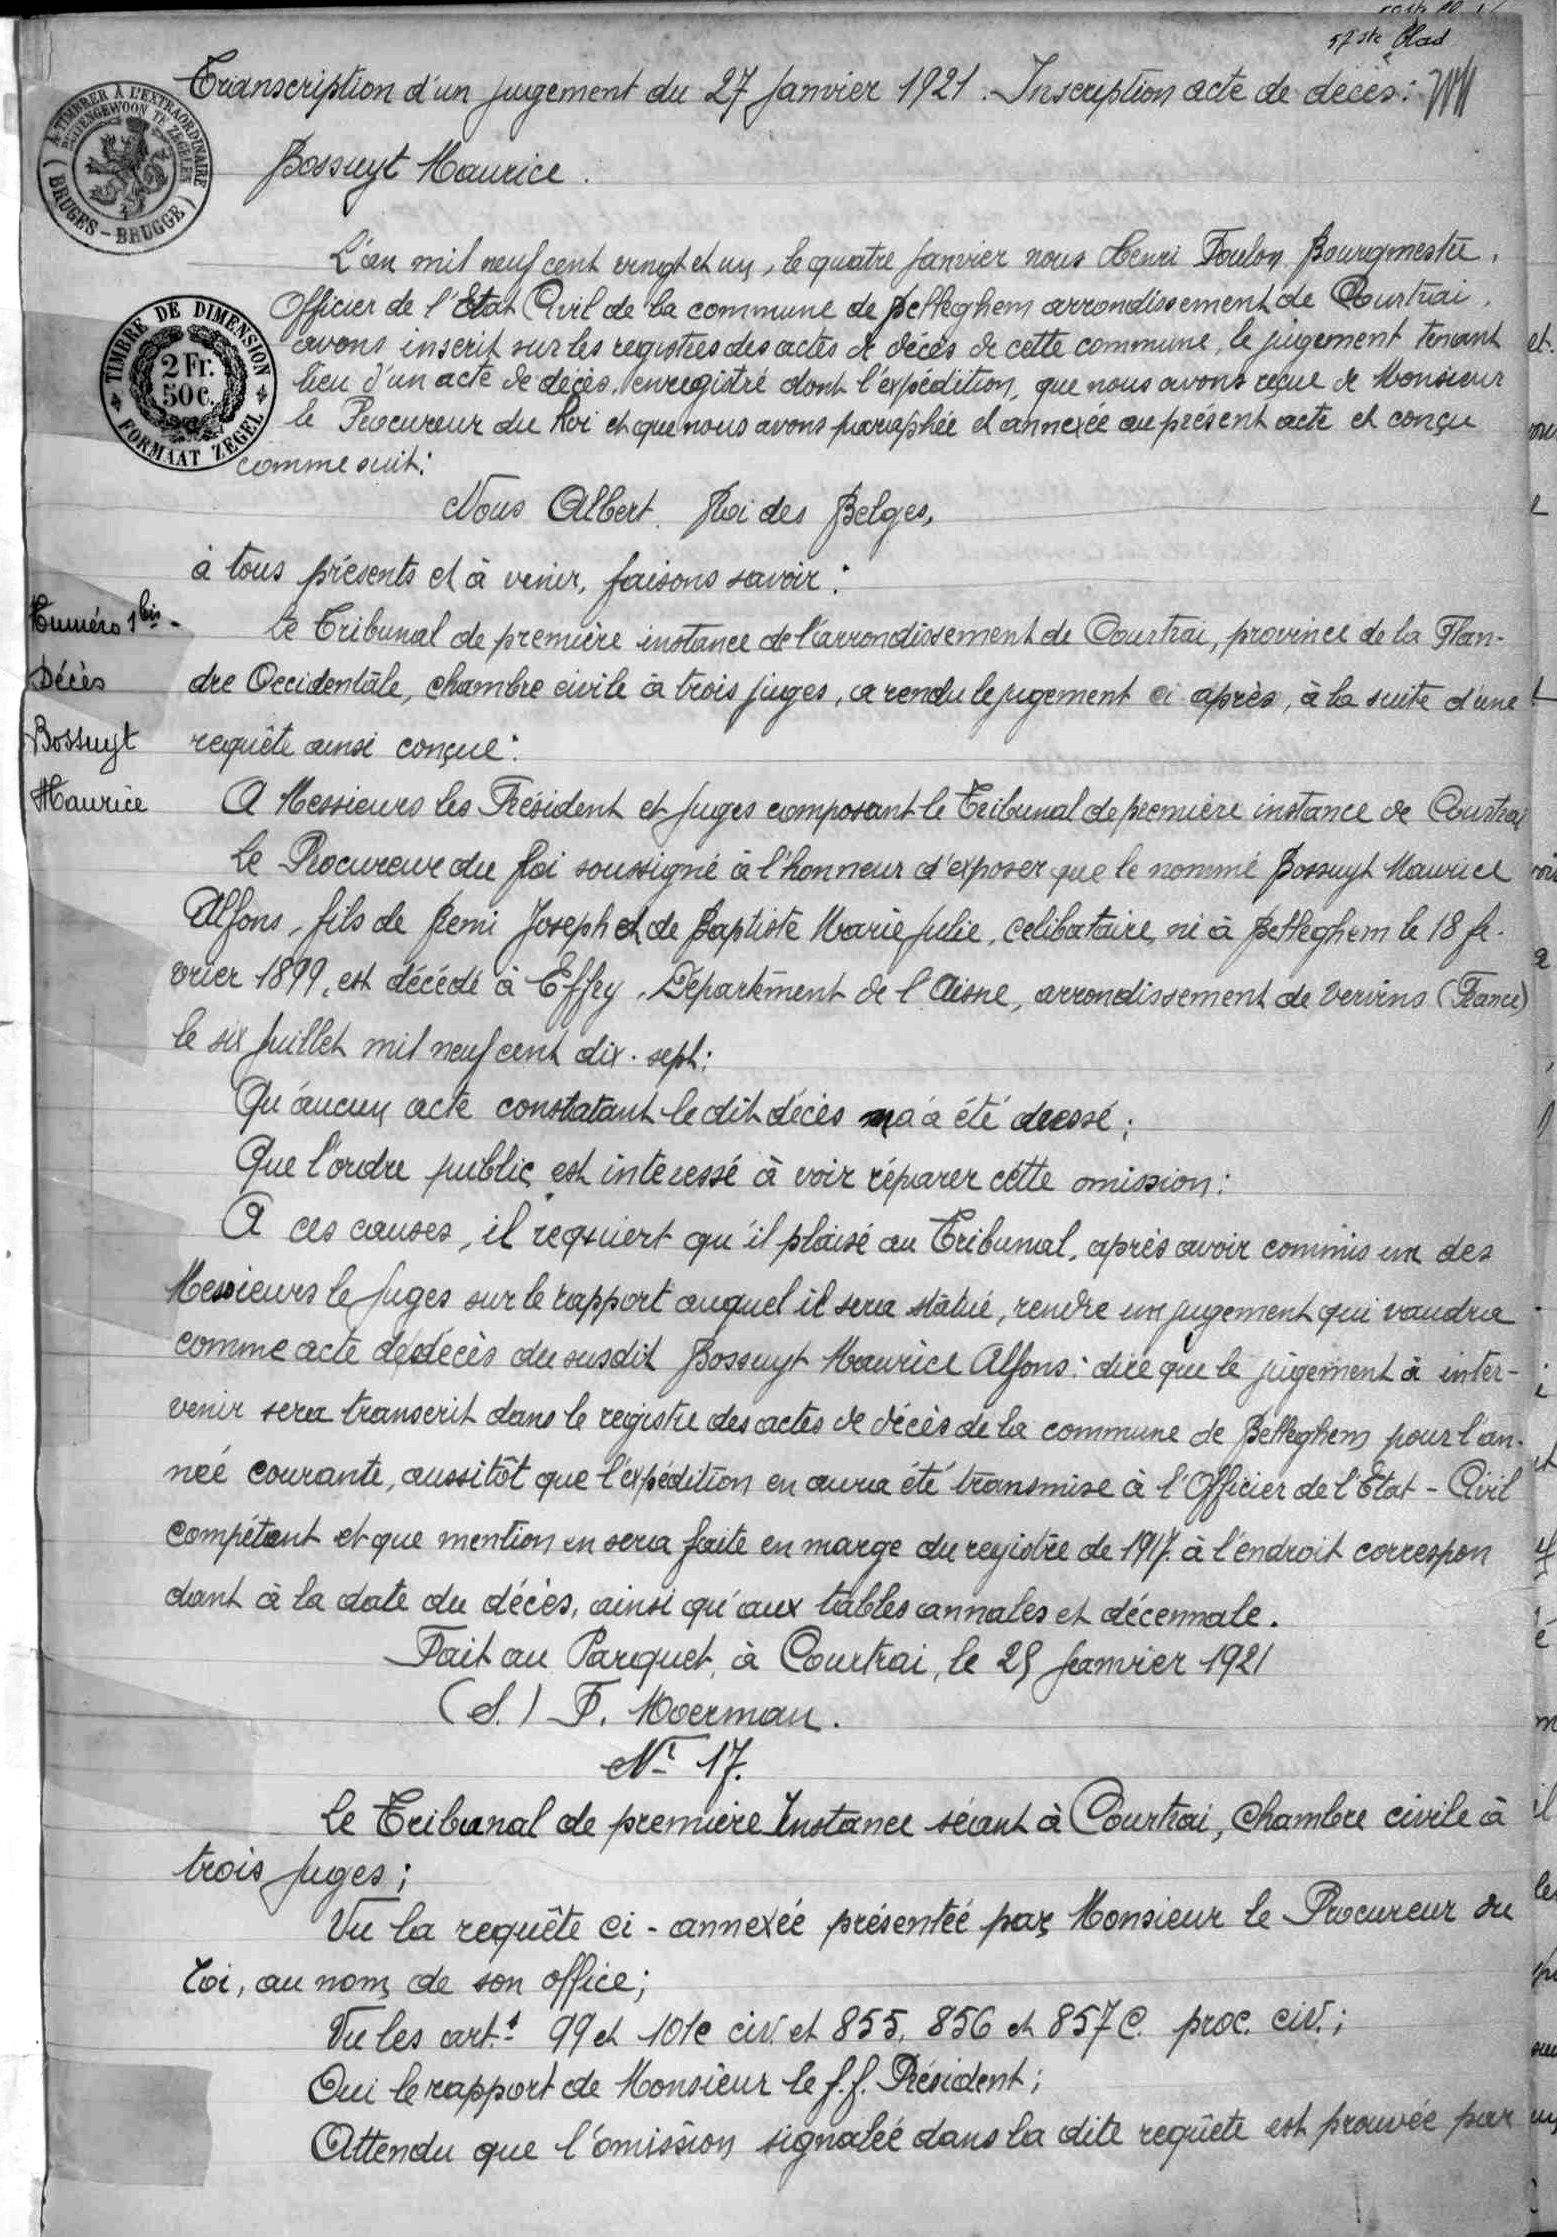 57ste Blad
Transcription d'un jugement du 27 Janvier 1921. Inscription acte de décès:
Bossuyt Maurice.
A TIMBRER A L'EXTRAORDINAIRE
BUITENGEWOON TE ZEGELEN
BRUGES - BRUGGE
L'an mil neuf cent vingt et un, le quatre Janvier nous Henri Foulon Bourgmestre,
Officier de l'Etat Civil de la commune de Belleghem arrondissement de Courtrai,
avons inscrit sur les registres des actes de décès de cette commune, le jugement tenant
lieu d'un acte de décès, enregistré dont l'expédition, que nous avons reçue de Monsieur
le Procureur du Roi et que nous avons paraphée et annexée au présent acte et conçu
comme suit:
TIMBRE DE DIMENSION
2 Fr.
50 c.
FORMAAT ZEGEL
Nous Albert, Roi des Belges,
à tous présents et à venir, faisons savoir:
Numéro 1bis -
Décès
Bossuyt
Maurice
Le Tribunal de première instance de l'arrondissement de Courtrai, province de la Flan-
dre Occidentale, chambre civile à trois juges, a rendu le jugement ci après, à la suite d'une
requête ainsi conçue:
A Messieurs les Président et Juges composant le Tribunal de première instance de Courtrai
Le Procureur du Roi soussigné à l'honneur d'exposer que le nommé Bossuyt Maurice
Alfons, fils de Remi Joseph et de Baptiste Marie Julie, celibataire, né à Belleghem le 18 fe-
vrier 1899, est décédé à Effry, Département de l'Aisne, arrondissement de Vervins (France)
le six Juillet mil neuf cent dix-sept:
Qu'aucun acte constatant le dit décès n'a été dressé;
Que l'ordre public est interessé à voir réparer cette omission:
A ces causes, il requiert qu'il plaise au Tribunal, après avoir commis un des
Messieurs le Juges sur le rapport auquel il sera statué, rendre un jugement qui vaudra
comme acte de décès du susdit Bossuyt Maurice Alfons: dire que le jugement à inter-
venir sera transcrit dans le registre des actes de décès de la commune de Belleghem pour l'an-
née courante, aussitôt que l'expédition en aura été transmise à l'Officier de l'Etat-Civil
compétent et que mention en sera faite en marge du registre de 1917 à l'endroit correspon
dant à la date du décès, ainsi qu'aux tables annales et décennale.
Fait au Parquet, à Courtrai, le 25 Janvier 1921
(S.) F. Moerman.
Nr 17.
Le Tribunal de première Instance séant à Courtrai, Chambre civile à
trois Juges;
Vu la requête ci-annexée présentée par Monsieur le Procureur du
roi, au nom de son office;
Vu les arts 99 et 101c civ. et 855, 856 et 857 C. proc. civ.;
Oui le rapport de Monsieur le f.f. Président;
Attendu que l'omission signalée dans la dite requête est prouvée par